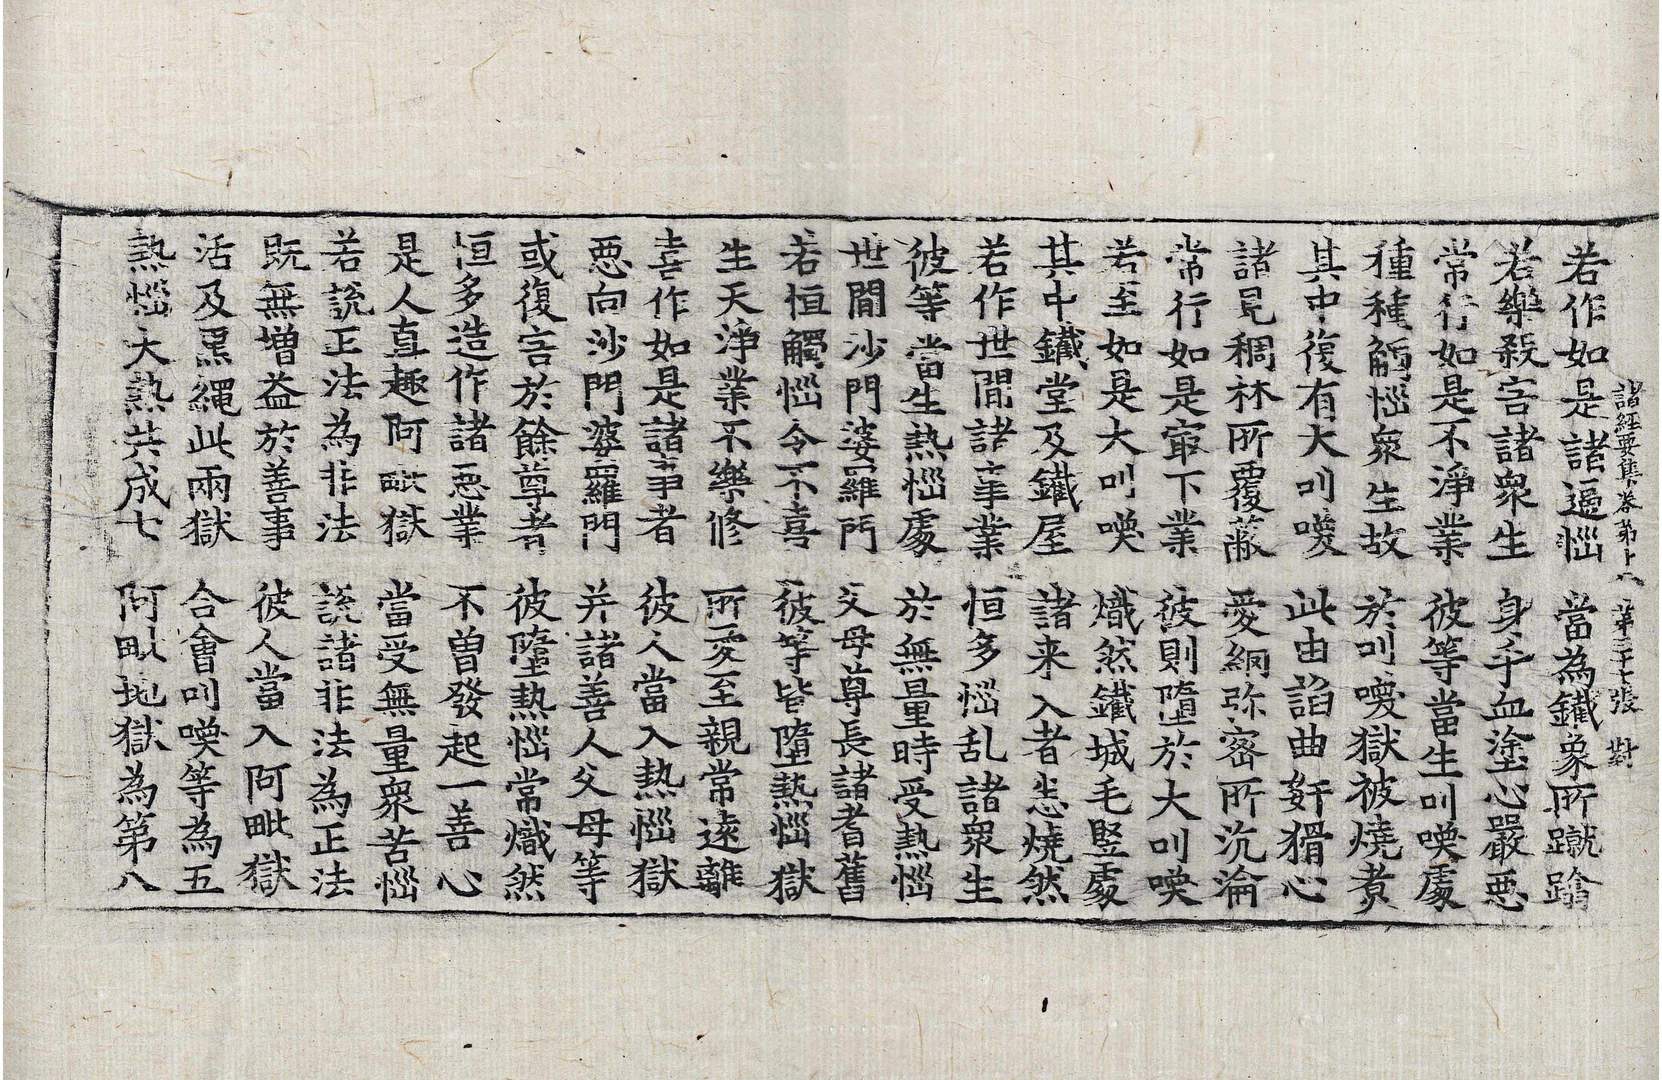 諸經要集卷第十八 第三十七張 對
若作如是諸逼惱 當為鐵象所蹴蹹
若樂殺害諸衆生 身手血塗心嚴惡
常行如是不淨業 彼等當生叫喚處
種種觸惱衆生故 於叫喚獄被燒煑
其中復有大叫喚 此由諂曲姧猾心
諸見稠林所覆蔽 愛網弥密所沉淪
常行如是寂下業 彼則墮於大叫喚
若至如是大叫喚 熾然鐵城毛竪處
其中鐵堂及鐵屋 諸来入者悉燒然
若作世間諸事業 恒多惱乱諸衆生
彼等當生熱惱處 於無量時受熱惱
世間沙門婆羅門 父母尊長諸耆舊
若恒觸惱令不喜 彼等皆墮熱惱獄
生天淨業不樂修 所愛至親常遠離
喜作如是諸事者 彼人當入熱惱獄
惡向沙門婆羅門 并諸善人父母等
或復害於餘尊者 彼墮熱惱常熾然
恒多造作諸惡業 不曽發起一善心
是人直趣阿毗獄 當受無量衆苦惱
若說正法為非法 說諸非法為正法
既無增益於善事 彼人當入阿毗獄
活及黒繩此兩獄 合會叫喚等為五
熱惱大熱共成七 阿毗地獄為第八